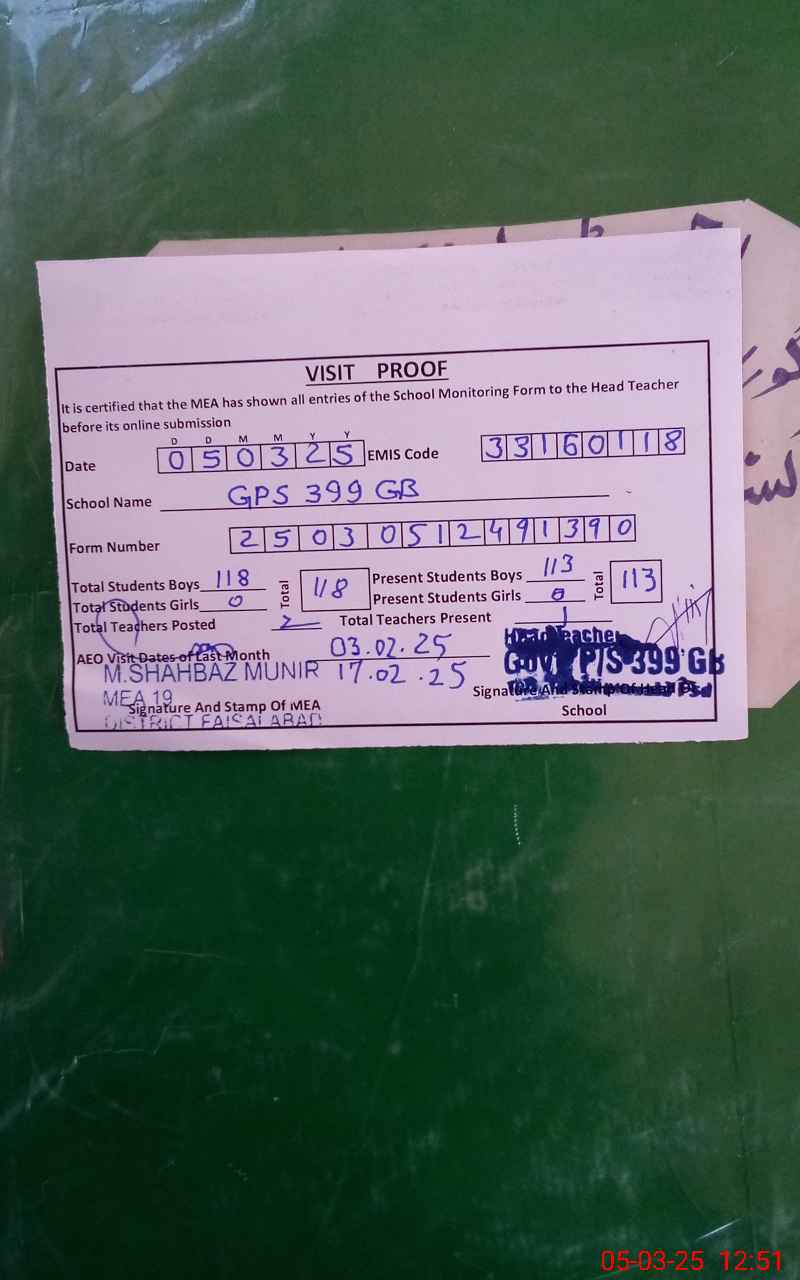 VISIT PROOF
It is certified that the MEA has shown all entries of the School Monitoring Form to the Head Teacher
before its online submission
D D M M Y Y
Date 050325 EMIS Code 33160118
School Name GPS 399 GB
Form Number 25030512491390
Total Students Boys 118 Total 118 Present Students Boys 113 Total 113
Total Students Girls 0 Present Students Girls 0
Total Teachers Posted 2 Total Teachers Present 1
AEO Visit Dates of Last Month 03.02.25
17.02.25
M.SHAHBAZ MUNIR
MEA 19
Signature And Stamp Of MEA
DISTRICT FAISALABAD
Head Teacher
Govt P/S 399 GB
Signature And Stamp Of Head
School
05-03-25 12:51